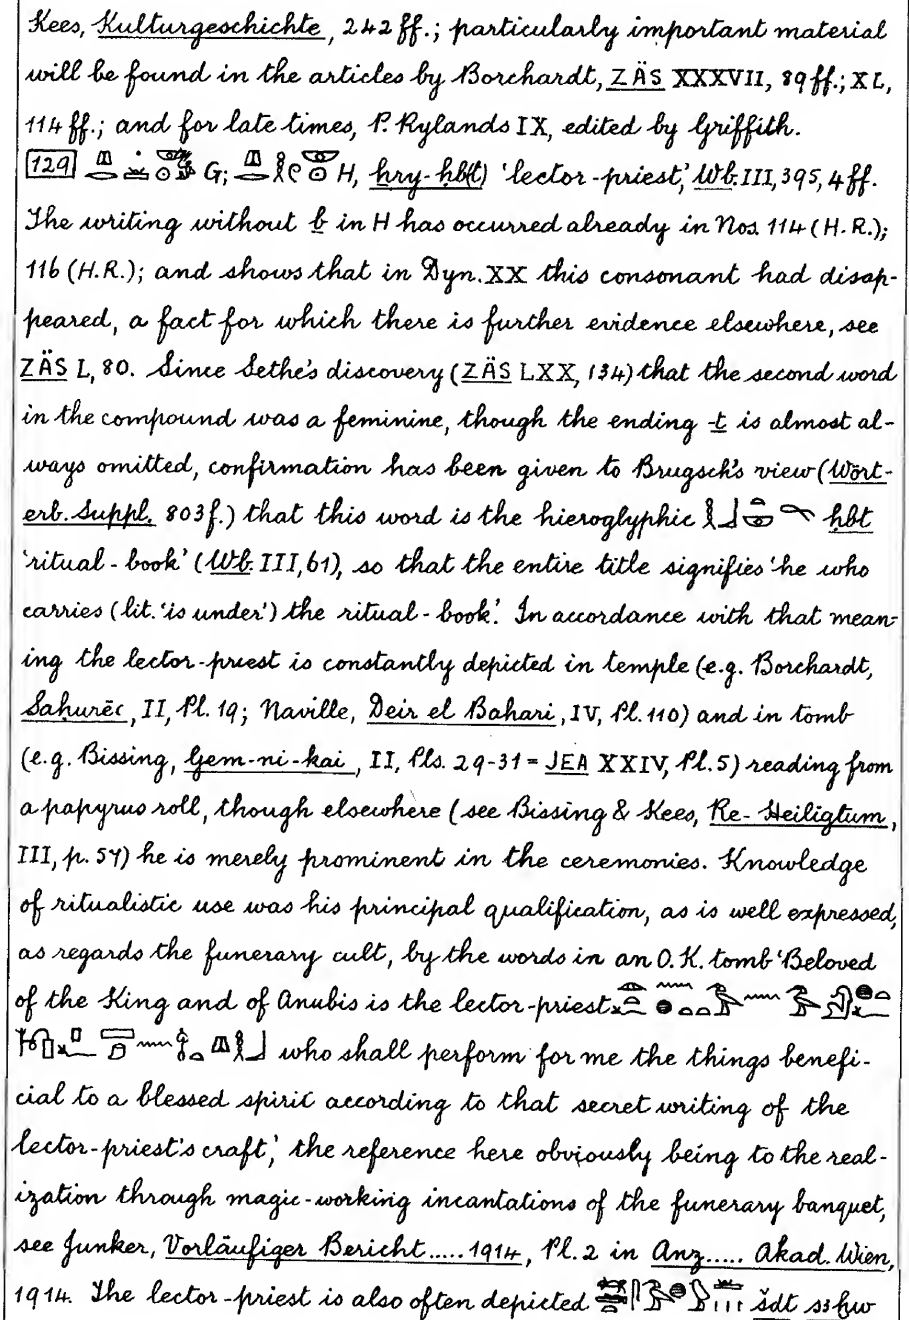 Kees, Kulturgeschichte, 242 ff.; particularly important material
will be found in the articles by Borchardt, ZÄS XXXVII, 89 ff.; XL,
114 ff.; and for late times, P. Rylands IX, edited by Griffith.
129 G; H, ẖry-ḥb(t) 'lector-priest', Wb. III, 395, 4 ff.
The writing without b in H has occurred already in Nos. 114 (H.R.);
116 (H.R.); and shows that in Dyn. XX this consonant had disap-
peared, a fact for which there is further evidence elsewhere, see
ZÄS L, 80. Since Sethe's discovery (ZÄS LXX, 134) that the second word
in the compound was a feminine, though the ending -t is almost al-
ways omitted, confirmation has been given to Brugsch's view (Wört-
erb. Suppl. 803 f.) that this word is the hieroglyphic ḥbt
'ritual-book' (Wb. III, 61), so that the entire title signifies 'he who
carries (lit. 'is under') the ritual-book'. In accordance with that mean-
ing the lector-priest is constantly depicted in temple (e.g. Borchardt,
Saḥurēꜥ, II, Pl. 19; Naville, Deir el Bahari, IV, Pl. 110) and in tomb
(e.g. Bissing, Gem-ni-kai, II, Pls. 29-31 = JEA XXIV, Pl. 5) reading from
a papyrus roll, though elsewhere (see Bissing & Kees, Re-Heiligtum,
III, p. 54) he is merely prominent in the ceremonies. Knowledge
of ritualistic use was his principal qualification, as is well expressed,
as regards the funerary cult, by the words in an O.K. tomb 'Beloved
of the King and of Anubis is the lector-priest
who shall perform for me the things benefi-
cial to a blessed spirit according to that secret writing of the
lector-priest's craft', the reference here obviously being to the real-
ization through magic-working incantations of the funerary banquet,
see Junker, Vorläufiger Bericht.....1914, Pl. 2 in Anz..... Akad. Wien,
1914. The lector-priest is also often depicted šdt sꜣḫw